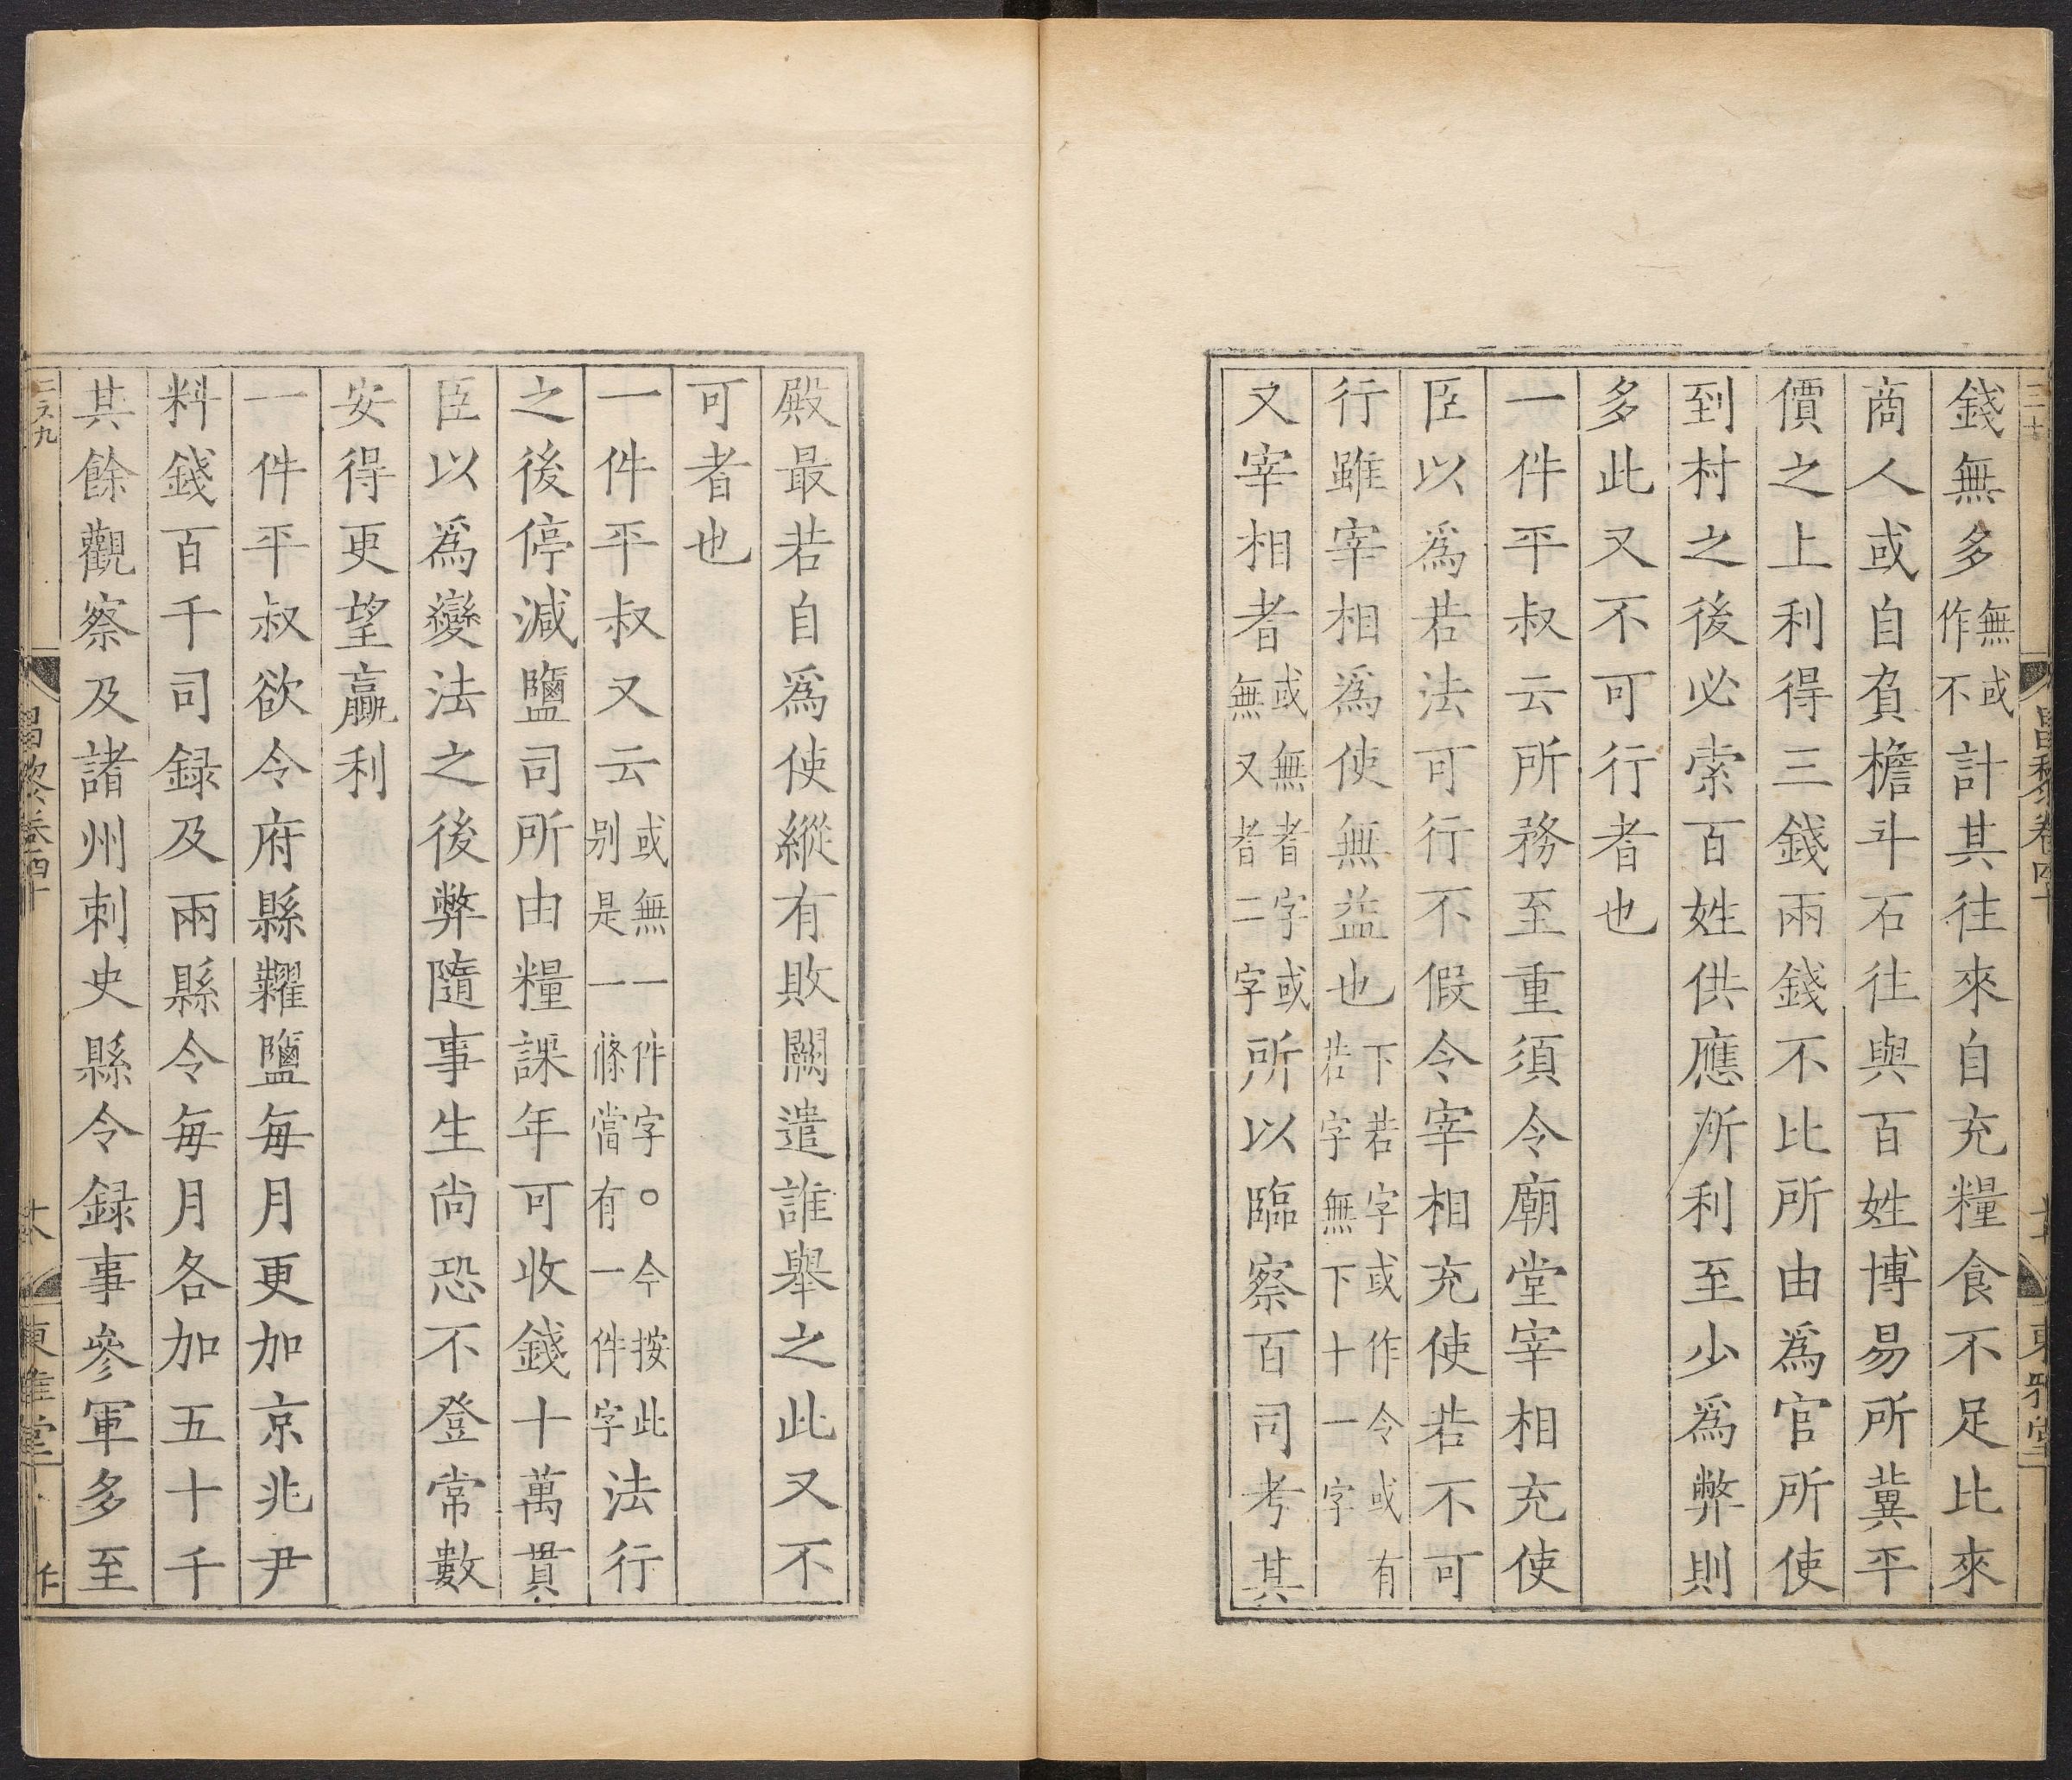 錢無多無或作不計其往來自充糧食不足比來
商人或自負檐斗石往與百姓博易所冀平
價之上利得三錢兩錢不比所由爲官所使
到村之後必索百姓供應所利至少爲弊則
多此又不可行者也
一件平叔云所務至重須令廟堂宰相充使
臣以爲若法可行不假令宰相充使若不可
行雖宰相爲使無益也下若字或作令或有若字無下十一字
又宰相者或無者字或無又者二字所以臨察百司考其
殿最若自爲使縱有敗闕遣誰舉之此又不
可者也
一件平叔又云或無一件字○今按此別是一條當有一件字法行
之後停減鹽司所由糧課年可收錢十萬貫
臣以爲變法之後弊隨事生尚恐不登常數
安得更望贏利
一件平叔欲令府縣糶鹽每月更加京兆尹
料錢百千司録及兩縣令每月各加五十千
其餘觀察及諸州刺史縣令録事參軍多至
昌黎卷四十
東雅堂